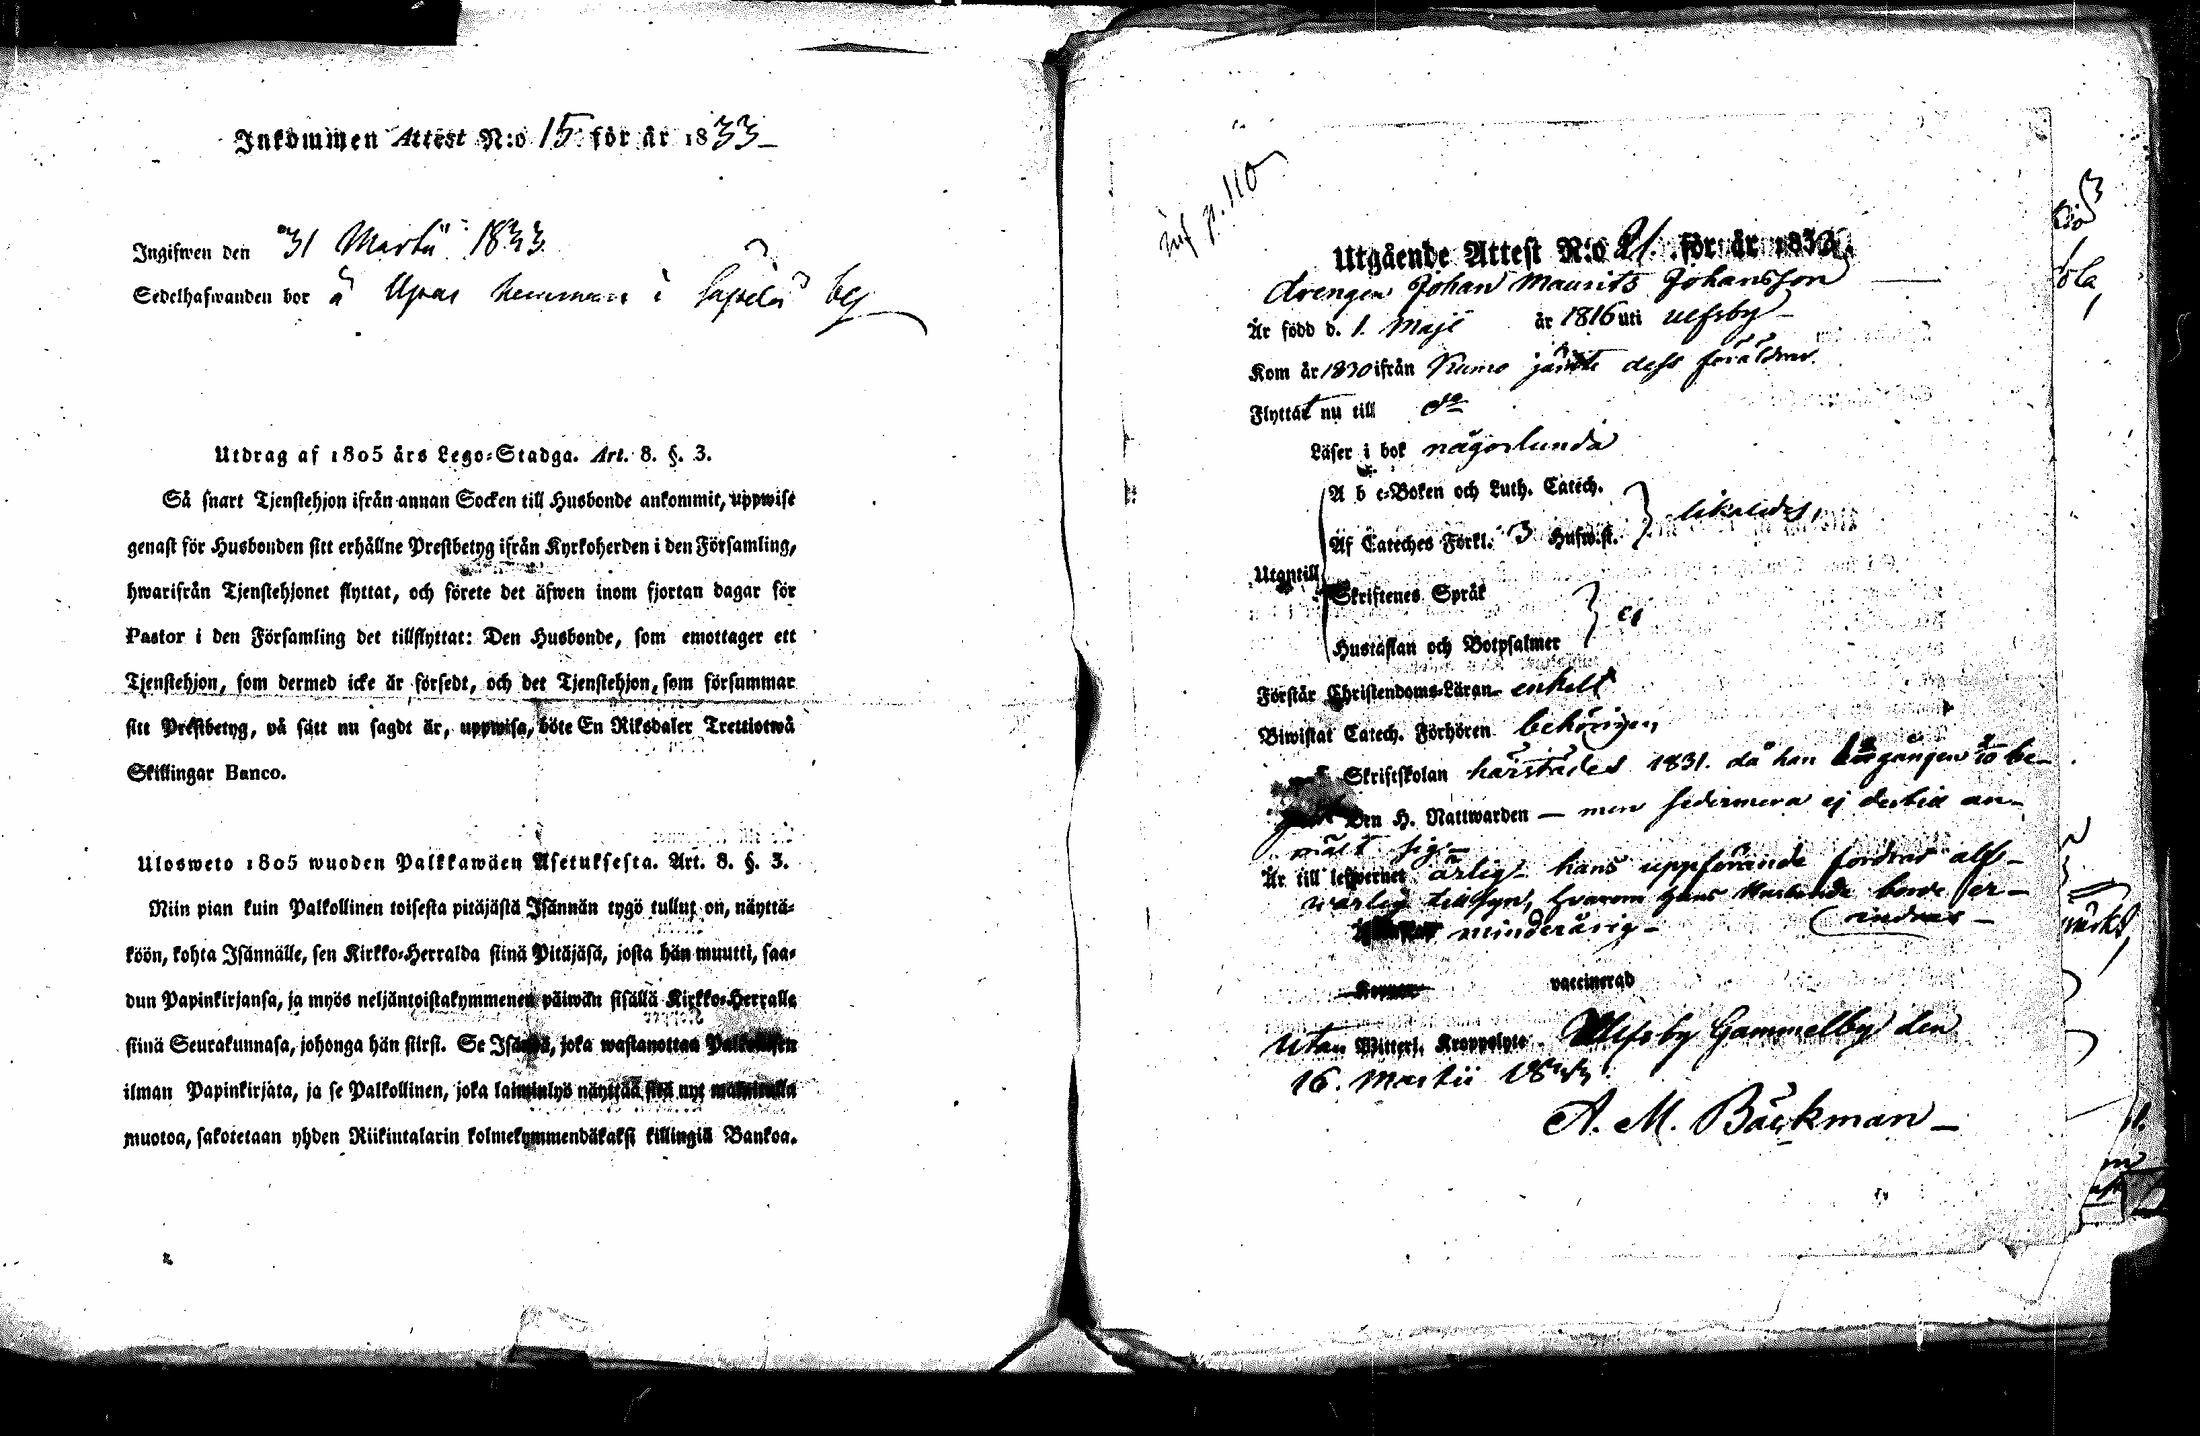 Inkommen Attest N:o 15 för år 1833
Ingifwen den 31 Martii 1833
Sedelhafwanden bor å Upas hemman i by
Utdrag af 1805 års Lego-Stadga. Art. 8. §. 3.
Så snart Tjenstehjon ifrån annan Socken till Husbonde ankommit, uppwise
genast för Husbonden sitt erhållne Prestbetyg ifrån Kyrkoherden i den Församling,
hwarifrån Tjenstehjonet flyttat, och förete det äfwen inom fjortan dagar för
Pastor i den Församling det tillflyttat: Den Husbonde, som emottager ett
Tjenstehjon, som dermed icke är försedt, och det Tjenstehjon, som försummar
sitt Prestbetyg, på sätt nu sagdt är, uppwisa, böte En Riksdaler Trettiotwå
Skillingar Banco.
Ulosweto 1805 wuoden Palkkawäen Asetuksesta. Art. 8. §. 3.
Niin pian kuin Palkollinen toisesta pitäjästä Isännän tygö tullut on, näyttä-
köön, kohta Isännälle, sen Kirkko-Herralda siinä Pitäjäsä, josta hän muutti, saa-
dun Papinkirjansa, ja myös neljäntoistakymmenen päiwän sisällä Kirkko-Herralla
siinä Seurakunnasa, johonga hän siirsi. Se Isändä, joka wastanottaa Palkollisen
ilman Papinkirjata, ja se Palkollinen, joka laiminlyö näyttää sitä nyt mainitulla
muotoa, sakotetaan yhden Riikintalarin kolmekymmendäkaksi killingiä Bankoa.
inf p. 110
Utgående Attest N:o 21. för år 1833.
drengen Johan Maurits Johansson
Är född d. 1. Maji år 1816 uti Ulfsby
Kom år 1830 ifrån Kumo jämte dess föräldrar
Flyttat nu till do
Läser i bok någorlunda
A b c-Boken och Luth. Catech.
Af Cateches Förkl. 3 Hufw.st. likaledes,
Utantill
Skriftenes Språk
Hustaflan och Botpsalmer ej
Förstår Christendoms-Läran enkelt
Biwistat Catech. Förhören behörigen
Skriftskolan härstädes 1831. då han be-
Den H. Nattwarden — men sedermera ej dertill an-
mält sig —
Är till lefwernet ärlig — hans uppförande fordrar alf-
warlig tillsyn, hvarom hans Husbonde borde er-
indras —
minderårig —
vaccinerad
utan Witterl. Kroppslyte. Ulfsby Gammelby den
16. Martii 1833
A. M. Bäckman —